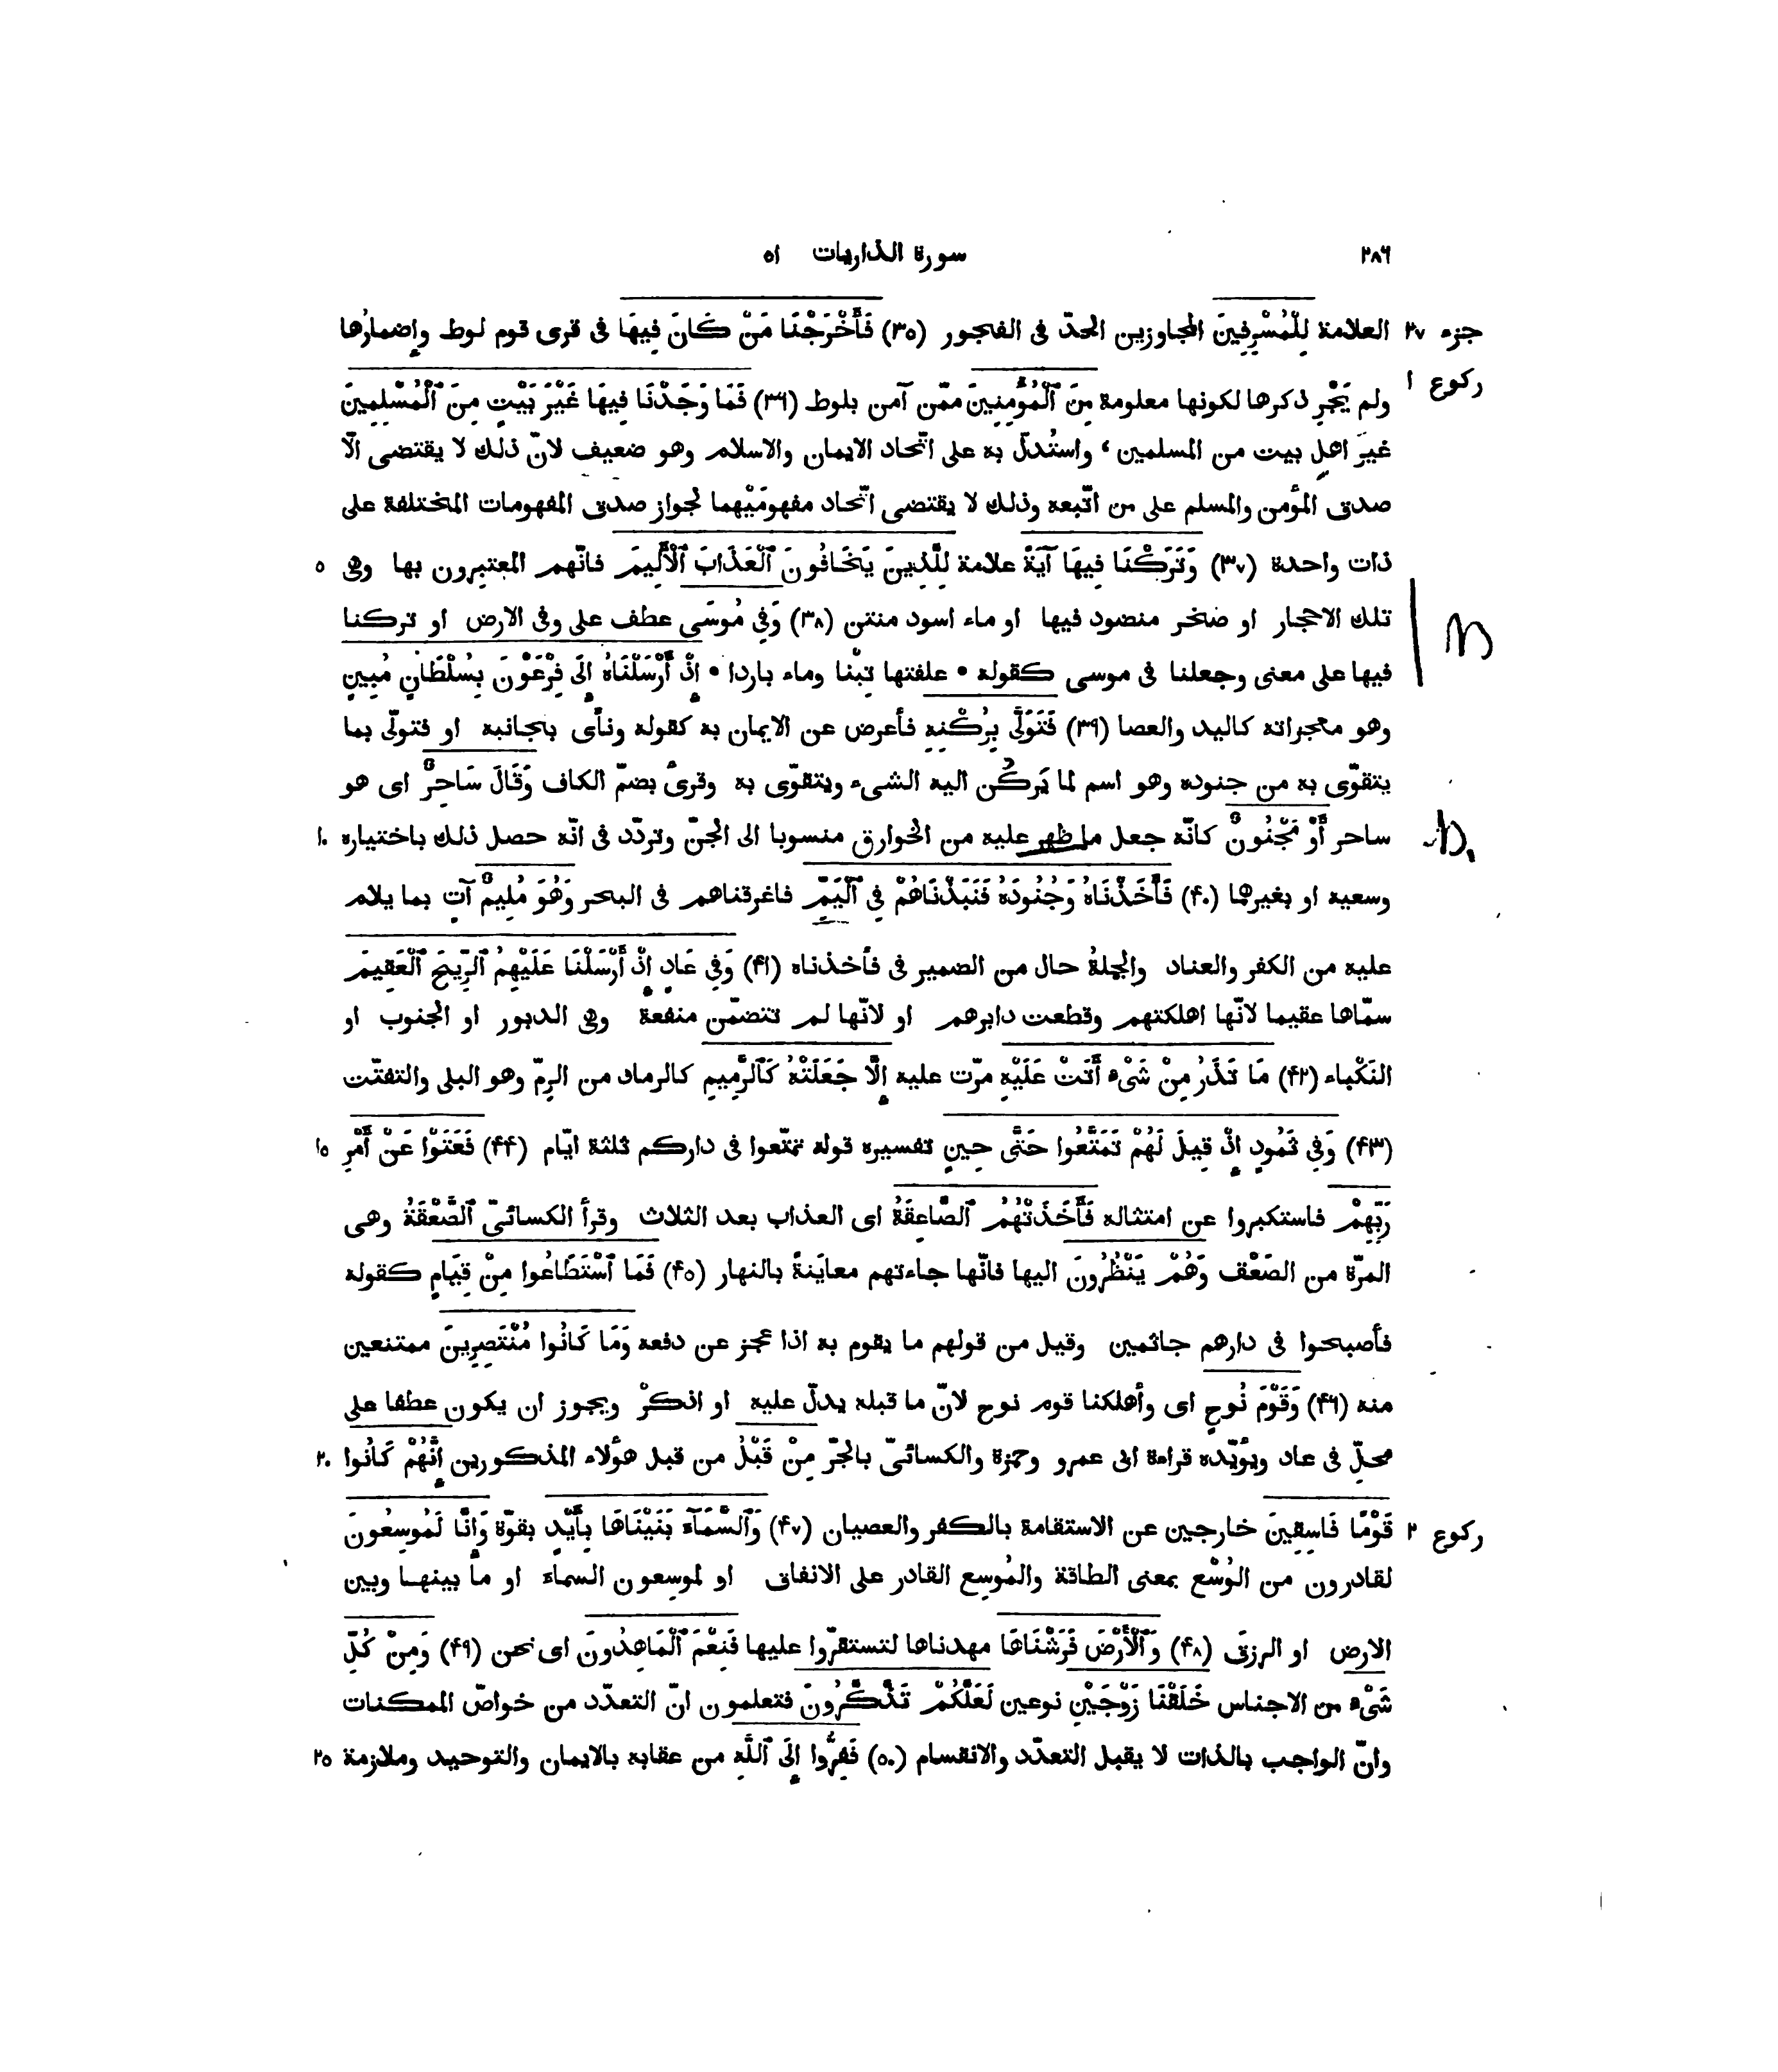 ٢٨٦ سورة الذاريات ٥١
جزء ٢٧ العلامة لِلْمُسْرِفِينَ المجاوزين الحدّ فى الفجور (٣٥) فَأَخْرَجْنَا مَنْ كَانَ فِيهَا فى قرى قوم لوط وإضمارُها
ركوع ١ ولم يَجْرِ ذكرها لكونها معلومة مِنَ ٱلْمُؤْمِنِينَ ممّن آمن بلوط (٣٦) فَمَا وَجَدْنَا فِيهَا غَيْرَ بَيْتٍ مِنَ ٱلْمُسْلِمِينَ
غيرَ اهلِ بيت من المسلمين، واستُدلّ به على اتّحاد الايمان والاسلام وهو ضعيف لانّ ذلك لا يقتضى الّا
صدق المؤمن والمسلم على من اتّبعه وذلك لا يقتضى اتّحاد مفهومَيْهما لجواز صدق المفهومات المختلفة على
ذات واحدة (٣٧) وَتَرَكْنَا فِيهَا آيَةً علامة لِلَّذِينَ يَخَافُونَ ٱلْعَذَابَ ٱلْأَلِيمَ فانّهم المعتبِرون بها وهى ٥
تلك الاحجار او صَخر منضود فيها او ماء اسود منتن (٣٨) وَفِي مُوسَى عطف على وفى الارض او تركنا
فيها على معنى وجعلنا فى موسى كقوله • علفتها تِبْنا وماء باردا • إِذْ أَرْسَلْنَاهُ إِلَى فِرْعَوْنَ بِسُلْطَانٍ مُبِينٍ
وهو معجزاته كاليد والعصا (٣٩) فَتَوَلَّى بِرُكْنِهِ فأعرض عن الايمان به كقوله ونأى بجانبه او فتولّى بما
يتقوّى به من جنوده وهو اسم لما يَركُن اليه الشىء ويتقوّى به وقرئ بضمّ الكاف وَقَالَ سَاحِرٌ اى هو
ساحر أَوْ مَجْنُونٌ كانّه جعل ما ظهر عليه من الخوارق منسوبا الى الجنّ وتردّد فى انّه حصل ذلك باختياره ١٠
وسعيه او بغيرهما (٤٠) فَأَخَذْنَاهُ وَجُنُودَهُ فَنَبَذْنَاهُمْ فِي ٱلْيَمِّ فاغرقناهم فى البحر وَهُوَ مُلِيمٌ آتٍ بما يلام
عليه من الكفر والعناد والجملةُ حال من الضمير فى فأخذناه (٤١) وَفِي عَادٍ إِذْ أَرْسَلْنَا عَلَيْهِمُ ٱلرِّيحَ ٱلْعَقِيمَ
سمّاها عقيما لانّها اهلكتهم وقطعت دابرهم او لانّها لم تتضمّن منفعة وهى الدبور او الجنوب او
النَكْباء (٤٢) مَا تَذَرُ مِنْ شَيْءٍ أَتَتْ عَلَيْهِ مرّت عليه إِلَّا جَعَلَتْهُ كَٱلرَّمِيمِ كالرماد من الرِمّ وهو البلى والتفتّت
(٤٣) وَفِي ثَمُودَ إِذْ قِيلَ لَهُمْ تَمَتَّعُوا حَتَّى حِينٍ تفسيره قوله تمتّعوا فى داركم ثلثة ايّام (٤٤) فَعَتَوْا عَنْ أَمْرِ ١٥
رَبِّهِمْ فاستكبروا عن امتثاله فَأَخَذَتْهُمُ ٱلصَّاعِقَةُ اى العذاب بعد الثلاث وقرأ الكسائىّ ٱلصَّعْقَةُ وهى
المرّة من الصَعْق وَهُمْ يَنْظُرُونَ اليها فانّها جاءتهم معايَنةً بالنهار (٤٥) فَمَا ٱسْتَطَاعُوا مِنْ قِيَامٍ كقوله
فأصبحوا فى دارهم جاثمين وقيل من قولهم ما يقوم به اذا عجز عن دفعه وَمَا كَانُوا مُنْتَصِرِينَ ممتنعين
منه (٤٦) وَقَوْمَ نُوحٍ اى وأهلكنا قوم نوح لانّ ما قبله يدلّ عليه او اذكرْ ويجوز ان يكون عطفا على
محلّ فى عاد ويؤيّده قراءة ابى عمرو وحمزة والكسائىّ بالجرّ مِنْ قَبْلُ من قبل هؤلاء المذكورين إِنَّهُمْ كَانُوا ٢٠
ركوع ٢ قَوْمًا فَاسِقِينَ خارجين عن الاستقامة بالكفر والعصيان (٤٧) وَٱلسَّمَآءَ بَنَيْنَاهَا بِأَيْدٍ بقوّة وَإِنَّا لَمُوسِعُونَ
لقادرون من الوُسْع بمعنى الطاقة والمُوسِع القادر على الانفاق او لموسِعون السماءَ او ما بينها وبين
الارض او الرزقَ (٤٨) وَٱلْأَرْضَ فَرَشْنَاهَا مهدناها لتستقرّوا عليها فَنِعْمَ ٱلْمَاهِدُونَ اى نحن (٤٩) وَمِنْ كُلِّ
شَيْءٍ من الاجناس خَلَقْنَا زَوْجَيْنِ نوعين لَعَلَّكُمْ تَذَّكَّرُونَ فتعلمون انّ التعدّد من خواصّ الممكنات
وانّ الواجب بالذات لا يقبل التعدّد والانقسام (٥٠) فَفِرُّوا إِلَى ٱللَّهِ من عقابه بالايمان والتوحيد وملازمة ٢٥